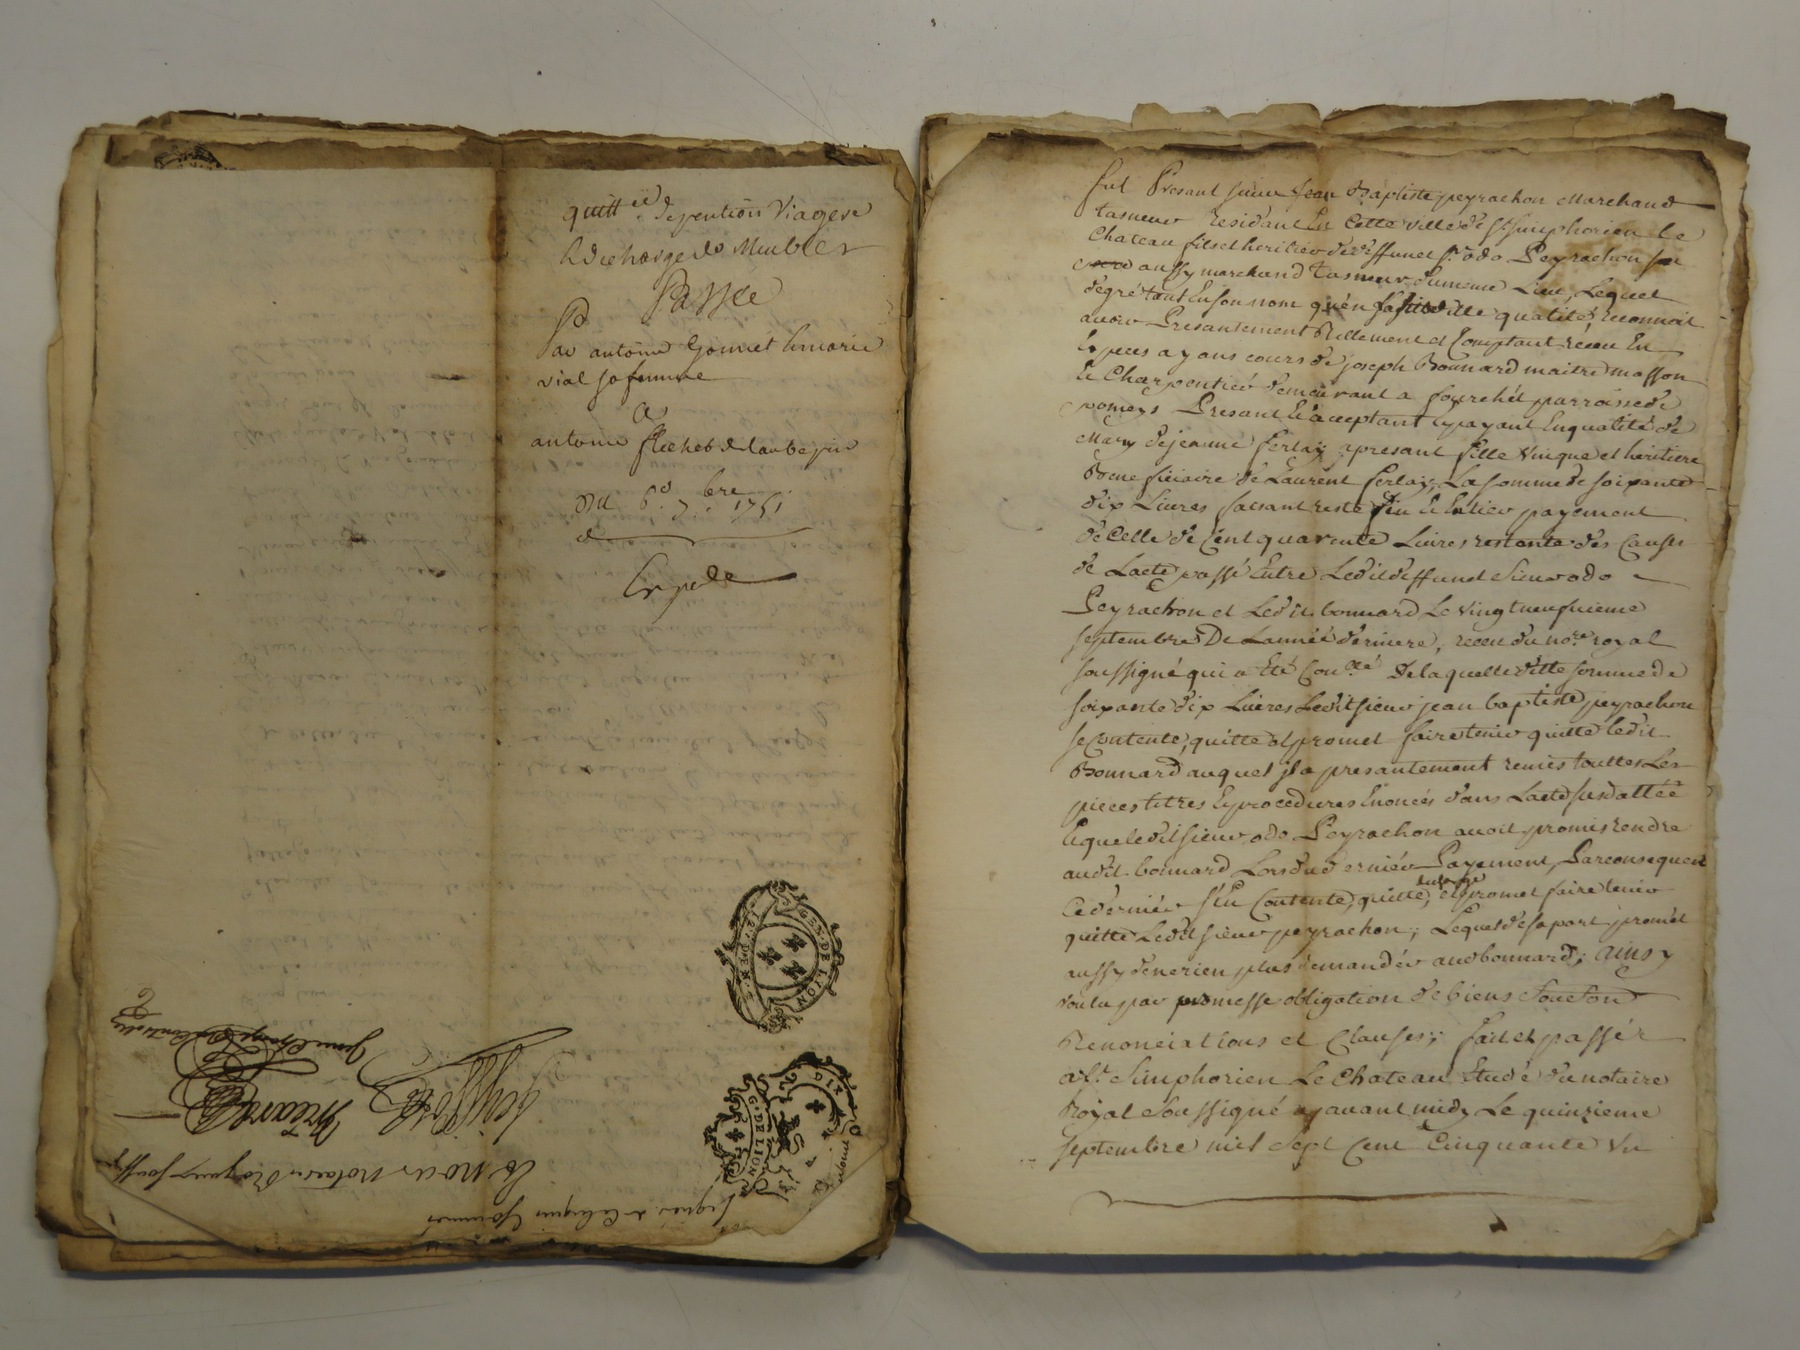 quitt.ce de pention Viagere
& decharge de Meubles
Passée
Par antoine Gonnet & marie
vial sa femme
a
antoine flechet de laubepin
Du 6.e 7.bre 1751
Expede
GEN. DE LION
G. DE LION
et nous Notaires Royaux soussignés
signés de ce requis & sommés
fut Presant sieur Jean Baptiste peyrachon Marchand
tanneur residant En cette ville de St Simphorien le
Chateau fils et heritier de deffunct Sr odo Peyrachon
aussy marchand tanneur du meme Lieu, Lequel
de gré tant En son nom qu'en sa ditte qualité, reconnoit
avoir Presantement Rellement et Comptant receu En
Especes ayans cours de joseph Bonnard maitre masson
& Charpentier demeurant a fourchet parroisse de
pomeys Presant & acceptant & payant En qualité de
Mary de jeanne ferlay apresant fille Unique et heritiere
Beneficiaire de Laurent ferlay, La somme de soixante
dix Livres faisant reste fin & Entier payement
de Celle de Cent quarente Livres restante des Causes
de Lacte passé Entre Ledit deffunct Sieur odo
Peyrachon et Ledit bonnard Le vingt neufvieme
septembre De Lannée derniere, receu du no.re royal
soussigné qui a Eté Con.llé De laquelle ditte somme de
soixante dix Livres Ledit sieur jean baptiste peyrachon
se Contente, quitte et promet faire tenir quitte ledit
Bonnard auquel jl a presantement remis touttes Les
pieces titres & procedures Enoncés dans Lacte susdatté
& que ledit sieur odo Peyrachon avoit promis rendre
audit bonnard Lors du dernier Payement, Parconsequent
Ce dernier s'En Contente, quitte, et promet faire tenir
quitte Ledit sieur peyrachon; Lequel de sa part promet
aussy de ne rien plus demander aud bonnard; ainsy
voulu par promesse obligation de biens
Renonciations et Clauses; fait et passé
a St Simphorien Le Chateau Etude du notaire
Royal soussigné avant midy Le quinzieme
septembre mil sept Cent Cinquante Un